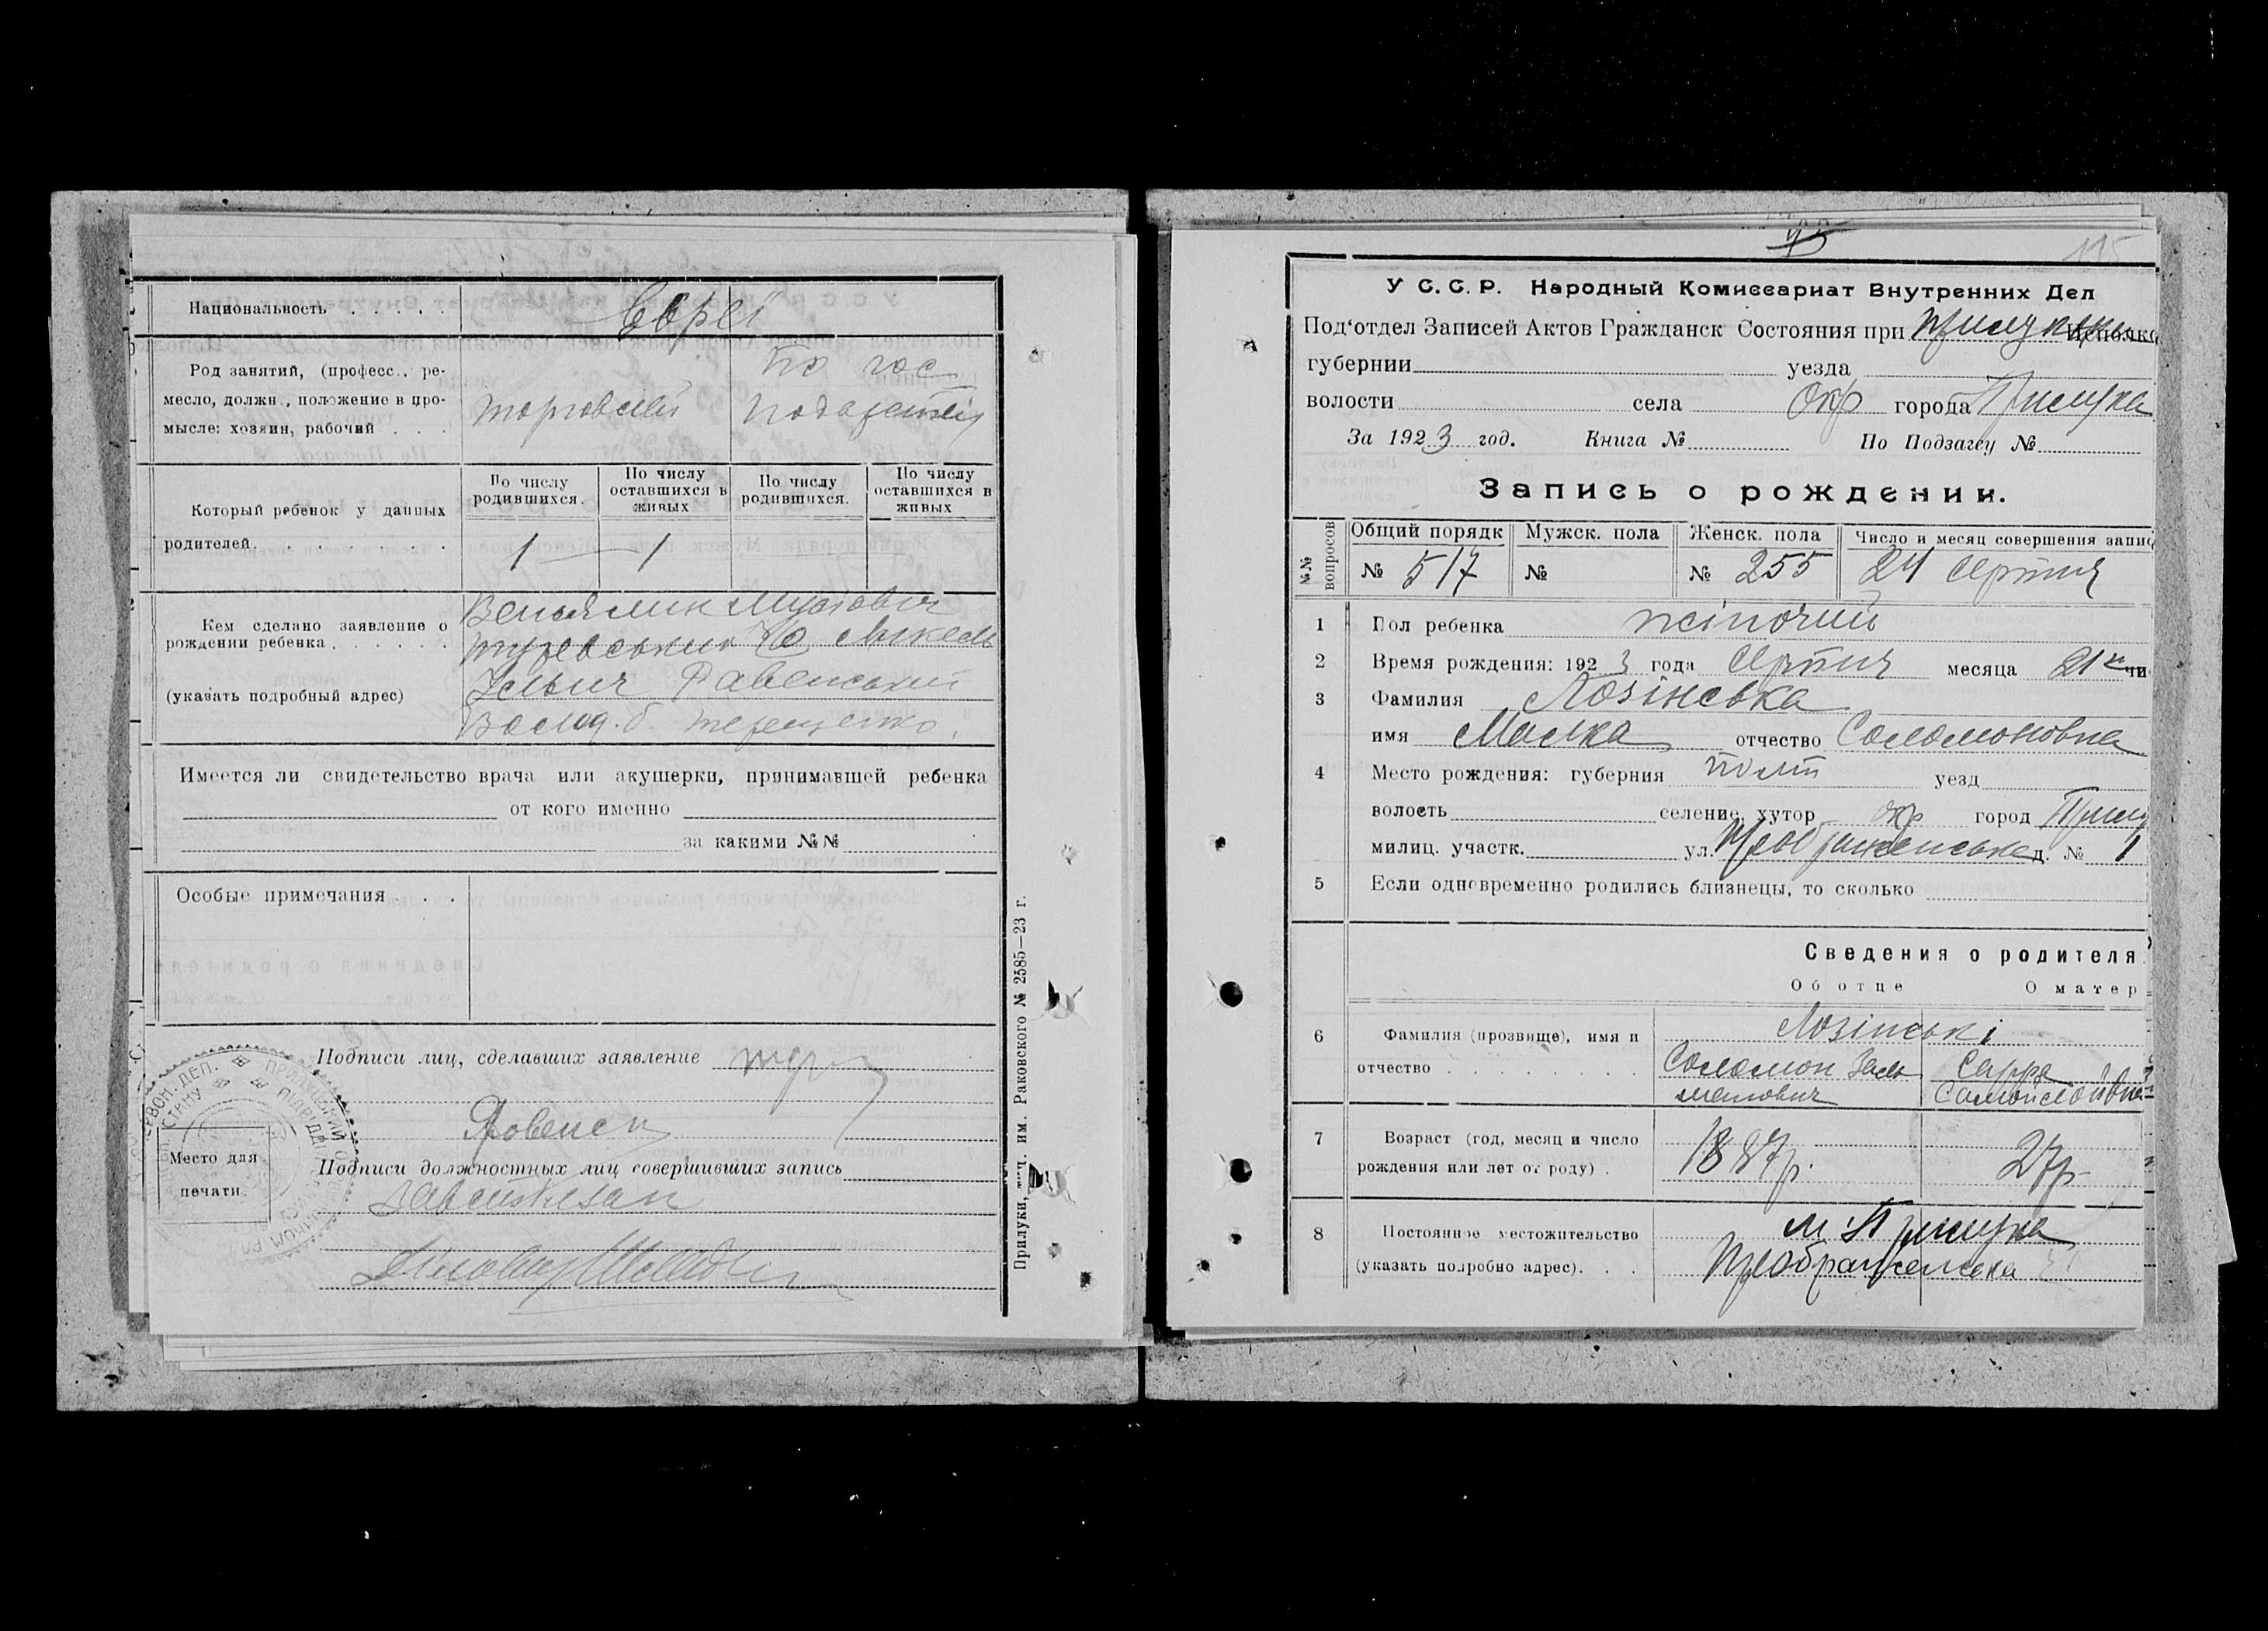 Национальность . . . . . Євреї
Род занятий, (професс., ре-
месло, должн., положение в про-
мысле: хозяин, рабочий . . .
торговлей
по гос
Который ребенок у данных
родителей . . . . . . .
По числу родившихся.
По числу оставшихся в живых
По числу родившихся.
По числу оставшихся в живых
1 — 1
Кем сделано заявление о
рождении ребенка . . . . . .
(указать подробный адрес)
Имеется ли свидетельство врача или акушерки, принимавшей ребенка
от кого именно
за какими №№
Особые примечания . . .
Подписи лиц, сделавших заявление
Подписи должностных лиц совершивших запись
Место для
печати.
Прилуки, им. Раковского № 2585—23 г.
75
115
У С. С. Р. Народный Комиссариат Внутренних Дел
Под'отдел Записей Актов Гражданск Состояния при
губернии уезда
волости села Окр города Прилука
За 1923 год. Книга № По Подзагсу №
Запись о рождении.
№№ вопросов
Общий порядк Мужск. пола Женск. пола Число и месяц совершения запис
№ 517 № № 255 24 серпня
1 Пол ребенка жіночий
2 Время рождения: 1923 года Серпня месяца 21 чи
3 Фамилия Лозінська
имя Малка отчество Соломоновна
4 Место рождения: губерния Полт уезд
волость селение, хутор окр город Прилу
милиц. участк. ул. Преображенська д. № 1
5 Если одновременно родились близнецы, то сколько
Сведения о родителя
Об отце О матер
6 Фамилия (прозвище), имя и
отчество . . . . . . . .
Лозінські
Соломон Зель
манович
Сарра
Самойловна
7 Возраст (год, месяц и число
рождения или лет от роду) .
1887р. 27р
8 Постоянное местожительство
(указать подробно адрес). . .
м. Прилука
Преображенська